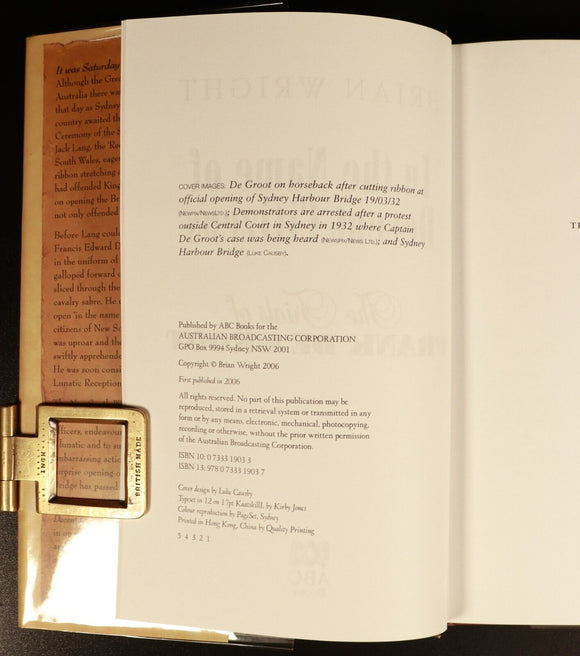 It was Saturday
Although the Gre
Australia there wa
that day as Sydney
country awaited th
Ceremony of the S
Jack Lang, the 'Re
South Wales, eage
ribbon stretching a
had offended King
on opening the Br
not only offended
Before Lang could
Francis Edward D
in the uniform of
galloped forward
sliced through the
cavalry sabre. He
open 'in the name
citizens of New So
was uproar and the
swiftly apprehende
He was soon consi
Lunatic Reception
officers, endeavou
lunatic and to su
embarrassing actio
surprise opening o
Bridge has passed
INCH
BRITISH MADE
BRIAN WRIGHT
In the Name of
The Trials of
COVER IMAGES: De Groot on horseback after cutting ribbon at
official opening of Sydney Harbour Bridge 19/03/32
(NEWSPIX/NEWS LTD.); Demonstrators are arrested after a protest
outside Central Court in Sydney in 1932 where Captain
De Groot's case was being heard (NEWSPIX/NEWS LTD.); and Sydney
Harbour Bridge (LUKE CAUSBY).
Published by ABC Books for the
AUSTRALIAN BROADCASTING CORPORATION
GPO Box 9994 Sydney NSW 2001
Copyright © Brian Wright 2006
First published in 2006
All rights reserved. No part of this publication may be
reproduced, stored in a retrieval system or transmitted in any
form or by any means, electronic, mechanical, photocopying,
recording or otherwise, without the prior written permission
of the Australian Broadcasting Corporation.
ISBN 10: 0 7333 1903 3
ISBN 13: 978 0 7333 1903 7
Cover design by Luke Causby
Typeset in 12 on 17pt Kaatskilll, by Kirby Jones
Colour reproduction by PageSet, Sydney
Printed in Hong Kong, China by Quality Printing
5 4 3 2 1
ABC
Books
T